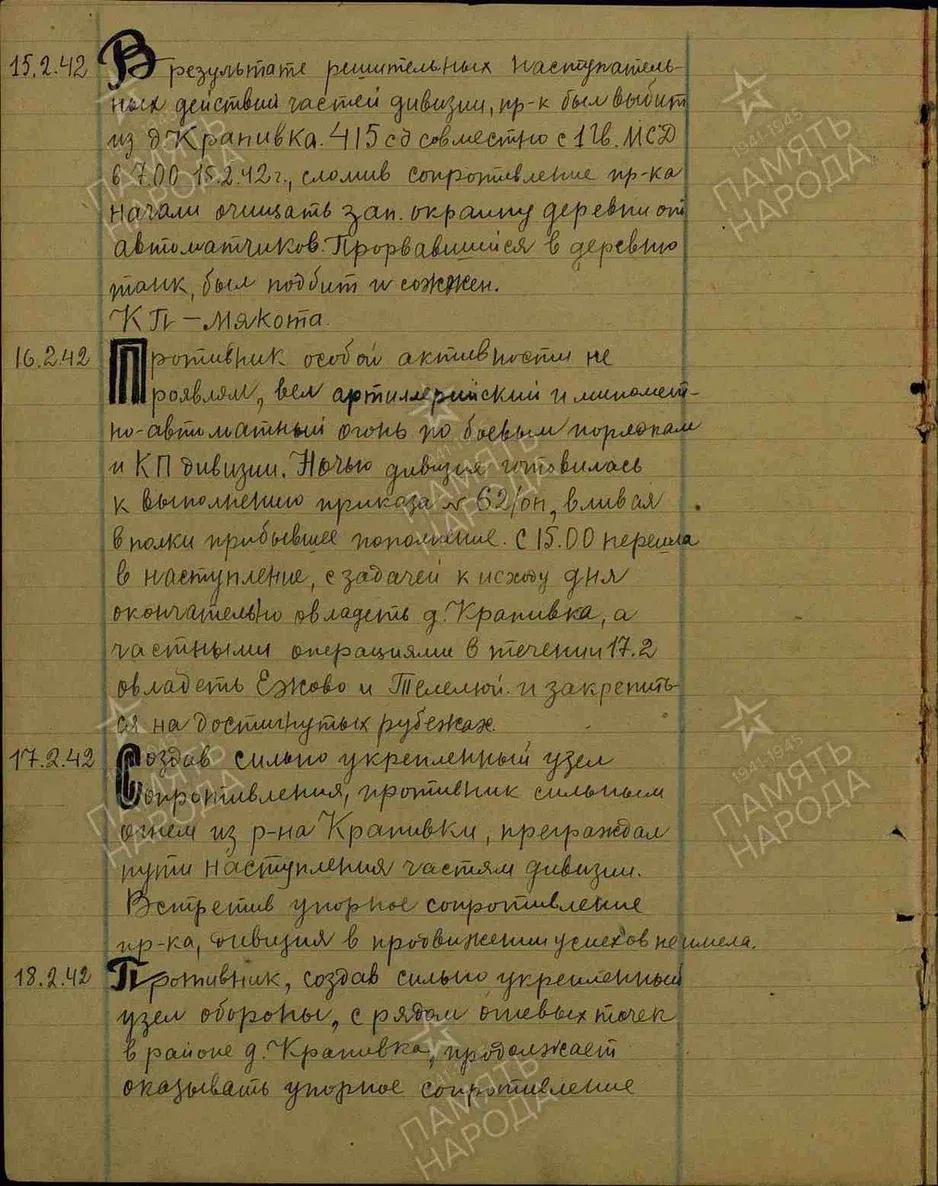 15.2.42 В результате решительных наступатель-
ных действий частей дивизии, пр-к был выбит
из д Крапивка. 415 сд совместно с 1 Гв. МСД
в 7.00 15.2.42 г., сломив сопротивление пр-ка
начали очищать зап. окраину деревни от
автоматчиков. Прорвавшийся в деревню
танк, был подбит и сожжен.
КП – Мякота.
16.2.42 Противник особой активности не
проявлял, вел артиллерийский и миномет-
но-автоматный огонь по боевым порядкам
и КП дивизии. Ночью дивизия готовилась
к выполнению приказа № 62/оп, вливая
в полки прибывшее пополнение. С 15.00 перешла
в наступление, с задачей к исходу дня
окончательно овладеть д. Крапивка, а
частными операциями в течении 17.2
овладеть Ежово и Телелюй. и закрепить-
ся на достигнутых рубежах.
17.2.42 Создав сильно укрепленный узел
сопротивления, противник сильным
огнем из р-на Крапивки, преграждал
пути наступления частям дивизии.
Встретив упорное сопротивление
пр-ка, дивизия в продвижении успехов не имела.
18.2.42 Противник, создав сильно укрепленный
узел обороны, с рядом огневых точек
в районе д. Крапивка, продолжает
оказывать упорное сопротивление
1941-1945
ПАМЯТЬ
НАРОДА